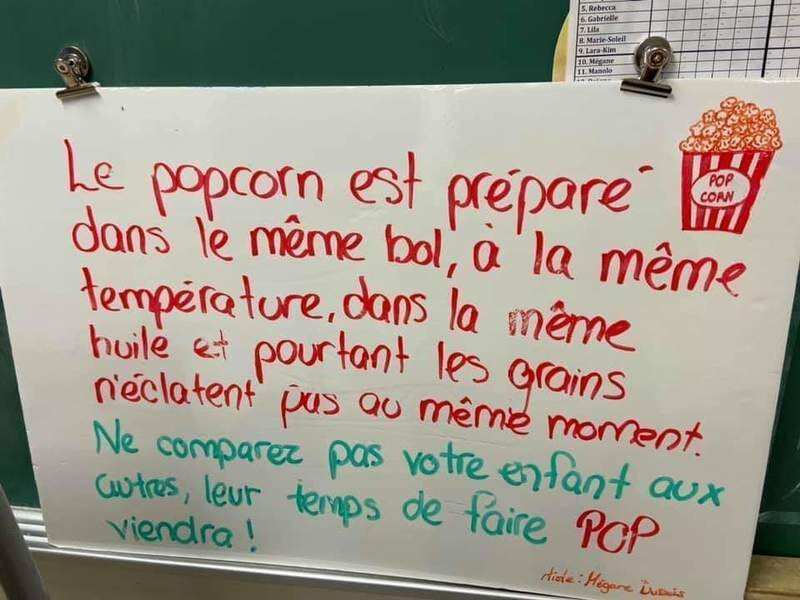 5. Rebecca
6. Gabrielle
7. Lila
8. Marie-Soleil
9. Lara-Kim
10. Mégane
11. Manolo
POP
CORN
Le popcorn est préparé
dans le même bol, à la même
température, dans la même
huile et pourtant les grains
n'éclatent pas au même moment.
Ne comparez pas votre enfant aux
autres, leur temps de faire POP
viendra!
Mégane